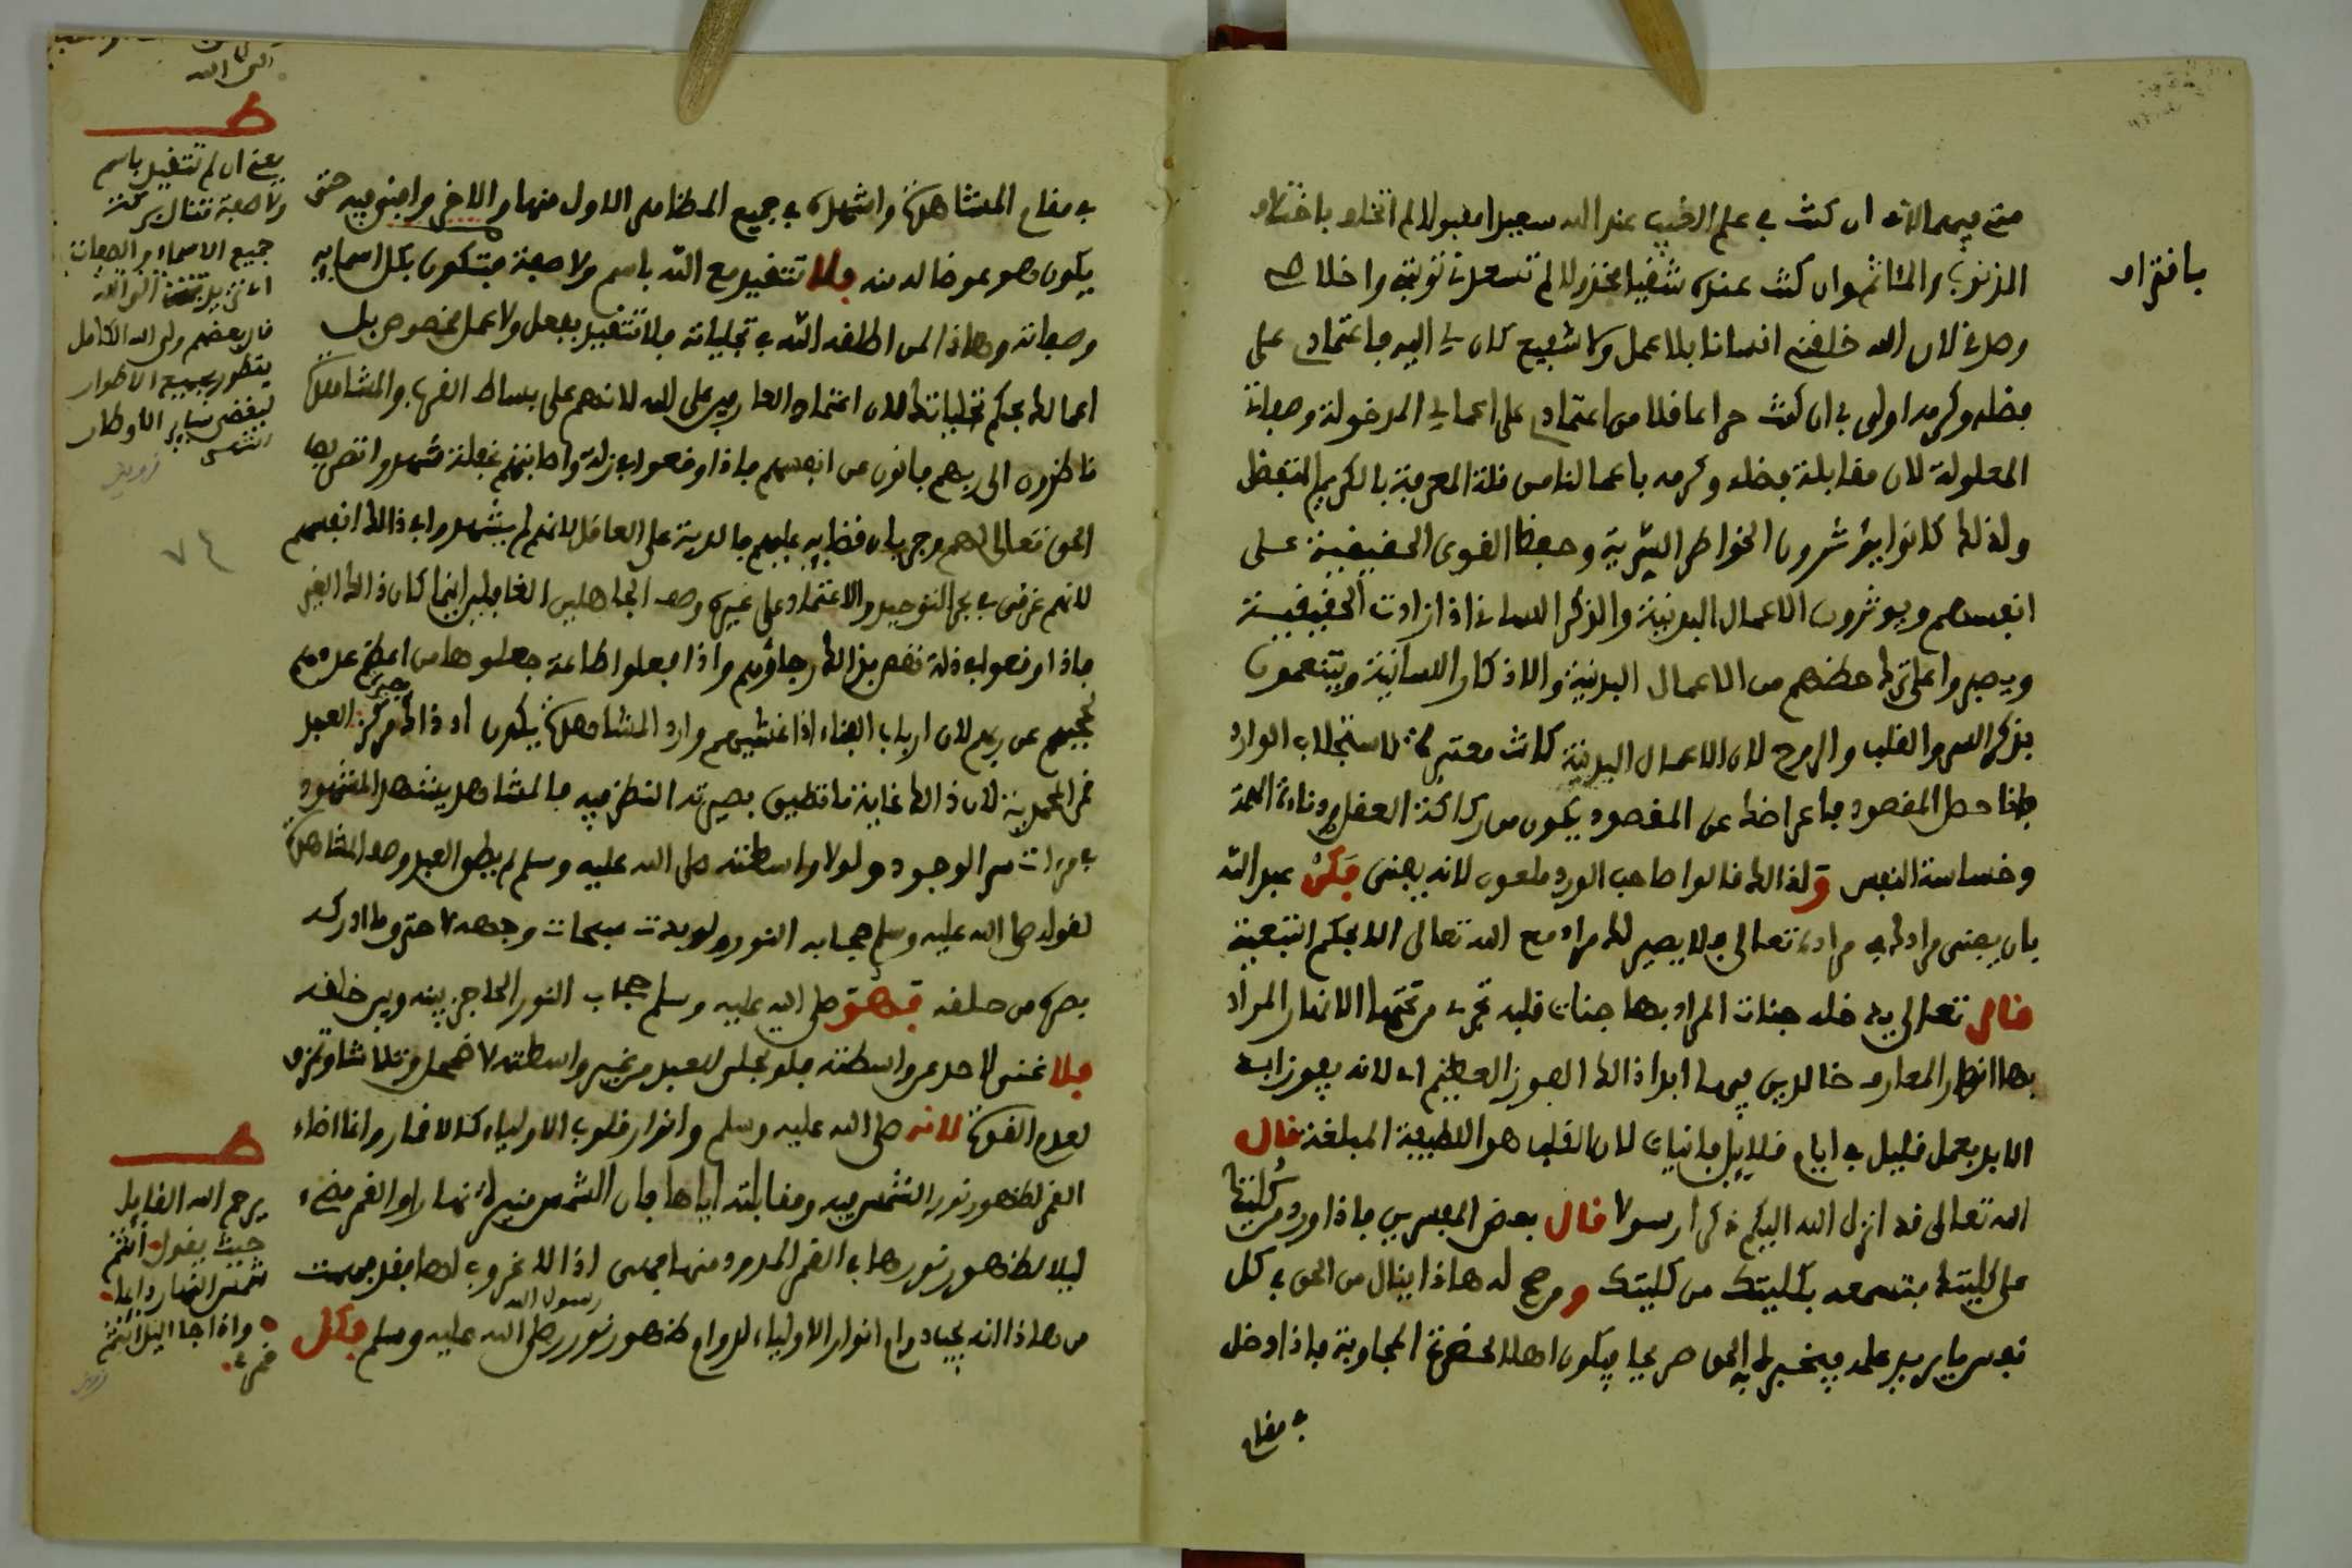 منح فيهما لأنه ان كنت في علم الغيب عند الله سعيدا مقبولا لم اتخلد باختيار
بافتراء
الذنوب والمئاثم وان كنت عنده شقيا مخذولا لم تسعدني توبتي واخلاصي
وصدقي لان الله خلقني انسانا بلا عمل ولا شفيع كان لي اليه فاعتمادي على
فضله وكرمه اولى في ان كنت حرا عاقلا من اعتمادي على اعمالي المدخولة وصفاتي
المعلولة لان مقابلة فضله وكرمه باعمالنا من قلة المعرفة بالكريم المتفضل
ولذلك كانوا الخواطر السرية وحفظ القوى الحقيقية على
انفسهم ويوثرون الاعمال البدنية والذكر اللساني اذا زادت الحقيقية
ويصبروا على ترك حظهم من الاعمال البدنية والاذكار اللسانية ويتنعمون
بذكر السر والقلب والروح لان الاعمال البدنية كانت معتبرة لاستجلاب الوارد
فاذا حصل المقصود فاعراضه عن المقصود يكون من ركاكة العقل ودناءة الهمة
وخساسة النفس ولذالك قالوا صاحب الورد ملعون لانه يعنى فكن عبد الله
بان يفنى مرادك في مراده تعالى فلا يصير لك مراد مع الله تعالى الا بحكم التبعية
قال تعالى يدخله جنات المراد بها جنات قلبه تجري من تحتها الانهار المراد
بها انهار المعارف خالدين فيها ابدا ذالك الفوز العظيم اي لانه يفوز ابد
الابد بعمل قليل في ايام قلايل فانيات لان القلب هو اللطيفة المبلغة قال
الله تعالى قد انزل الله اليكم ذكرا رسولا قال بعض المفسرين فاذا ورد من كليتها
على كليتك فتسمعه بكليتك من كليتك ومن صح له هاذا ينال من الحق في كل
نفس ما يريد علمه فيخبر له الحق صريحا فيكون اهلا لحضرة المجاوبة فاذا دخل
في مقام
في مقام المشاهدة واشهده في جميع المظاهر الاول منها والاخر وافنى فيه حتى
يكون هو عوضا له منه فلا تتقيد مع الله باسم ولا صفة فتكون بكل اسمايه
وصفاته وهاذا لمن اطلقه الله في تجلياته فلا تتقيد بفعل ولا عمل مخصوص بل
اعمالك بحكم تجلياته لك لان اعتماد العارفين على الله لانهم على بساط القرب والمشاهدة
ناظرون الى ربهم فانون عن انفسهم فاذا وقعوا في زلة واصابتهم غفلة شهدوا تصريف
الحق تعالى لهم وجريان قضايه عليهم كالدية على العاقل لانهم لم يشهدوا في ذالك انفسهم
لانهم غرقى في بحر التوحيد والاعتماد على غيره وصف الجاهلين الغافلين اينما كان ذالك الغير
فاذا وقعوا في زلة نقص بذالك رجاؤهم واذا فعلوا طاعة جعلوها من اعظم عددهم
لحجبهم عن ربهم لان ارباب الفناء اذا غشيهم وارد المشاهدة يكون اذ ذاك مركز العبد
قمر المحمدية لان ذالك غاية ما تطيق بصيرته النظر فيه فالمشاهد يشهد المشهود
في مرءات سر الوجود ولولا واسطته صلى الله عليه وسلم لم يطق العبد وصف المشاهدة
لقوله صلى الله عليه وسلم حجابه النور ولو بدت سبحات وجهه لاحترق ما ادركه
بصره من خلقه فهو صلى الله عليه وسلم حجاب النور الحاجز بينه وبين خلقه
فلا غنى لاحد عن واسطته فلو تجلى للعبد من غير واسطته لاضمحل وتلاشا وتمزق
لعدم القدرة لانه صلى الله عليه وسلم وانوار قلوب الاولياء كالاقمار وانما اضاء
القمر لظهور نور الشمس فيه ومقابلته اياها فان الشمس منيرة نهارا والقمر مضيء
ليلا لظهور نورها في القمر الممدود منها فهي اذا لا غروب لها فقد فهمت
من هاذا انه يجب دوام انوار الاولياء لدوام ظهور نور رسول الله صلى الله عليه وسلم فكل
النبي الله
يعني ان لم تتقيد باسم
ولا صفة تنال بركة
جميع الاسماء والصفات
قال بعضهم ولي الله الكامل
يتطور بجميع الاطوار
ليقضي ساير الاوطار
انتهى
٧٤
يرحم الله القايل
حيث يقول انتم
شمس النهار دايما
واذا جا اليل انتم
قمري